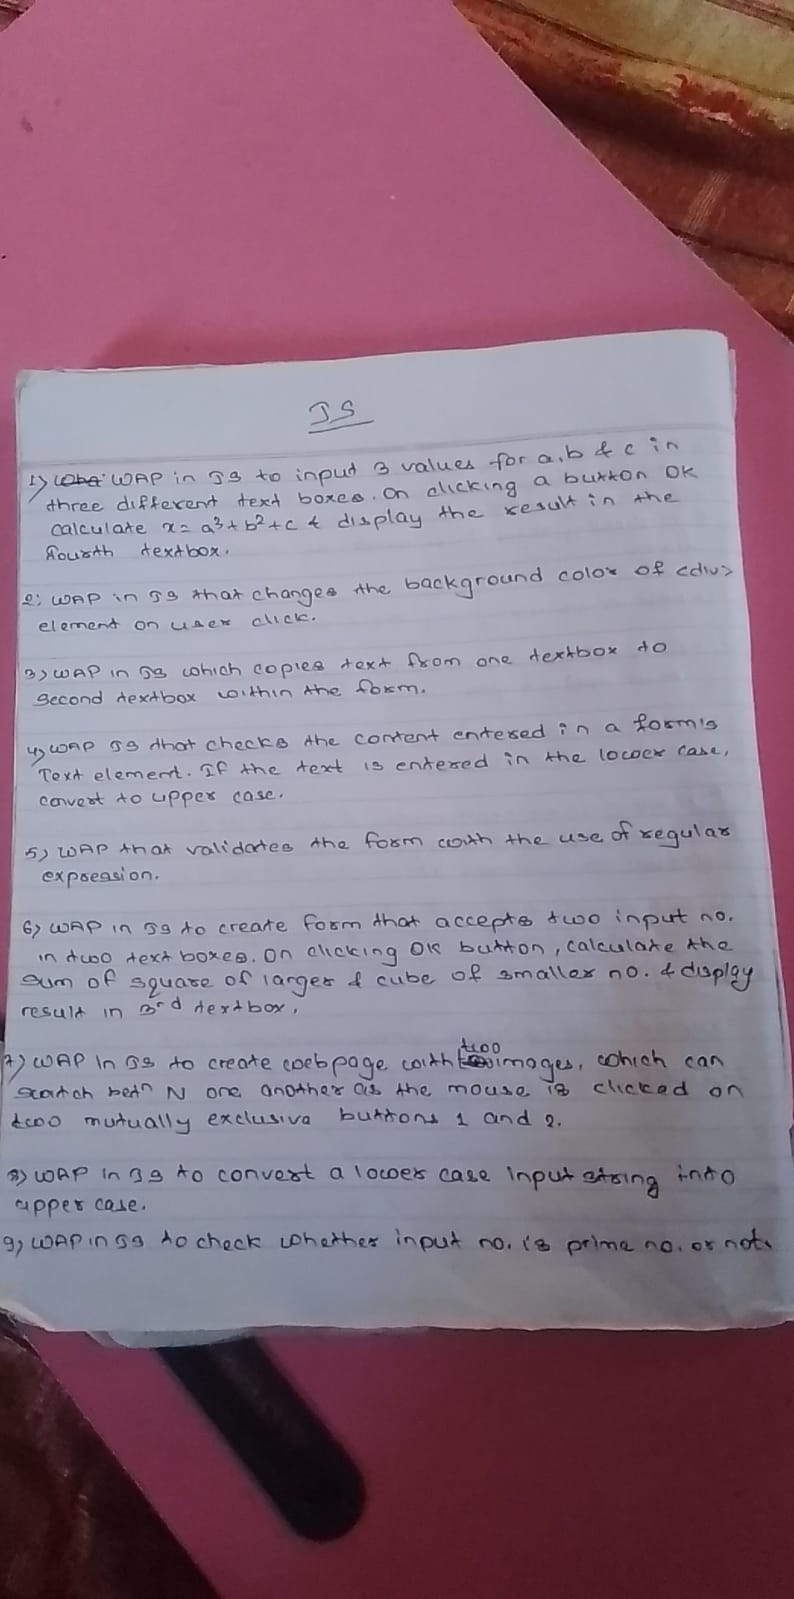 JS
1) WAP in JS to input 3 values for a, b & c in
three different text boxes. On clicking a button OK
calculate x = a³ + b² + c & display the result in the
fourth textbox.
2: WAP in JS that changes the background color of <div>
element on user click.
3) WAP in JS which copies text from one textbox to
second textbox within the form.
4) WAP JS that checks the content entered in a form's
Text element. If the text is entered in the lower case,
convert to upper case.
5) WAP that validates the form with the use of regular
expression.
6) WAP in JS to create form that accepts two input no.
in two text boxes. On clicking OK button, calculate the
sum of square of larger & cube of smaller no. & display
result in 3rd textbox.
7) WAP in JS to create webpage with two images, which can
betn N one another as the mouse is clicked on
two mutually exclusive buttons 1 and 2.
8) WAP in JS to convert a lower case input string into
upper case.
9) WAP in JS to check whether input no. is prime no. or not.